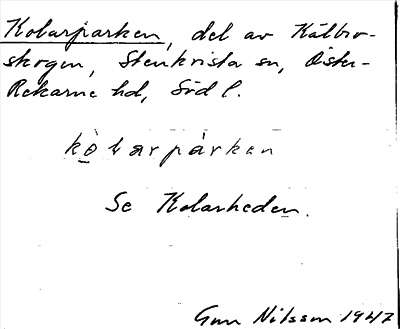 Kolarparken, del av Kälbro-
skogen, Stenkvista sn, Öster-
Rekarne hd, Söd l.
kò larpàrken
Se Kolarheden.
Gun Nilsson 1947